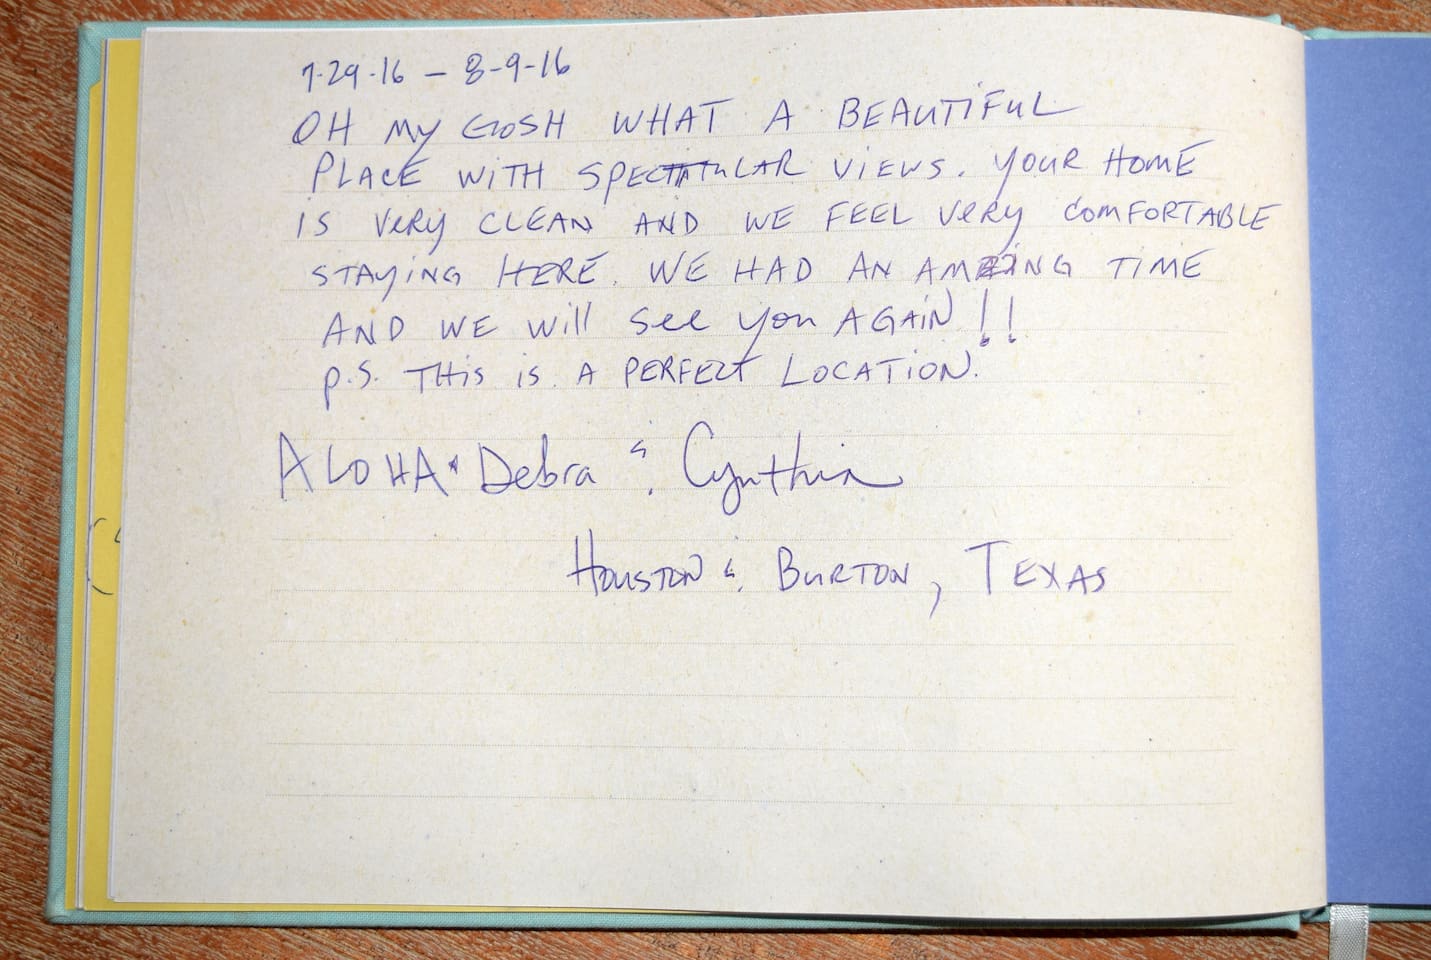 7-29-16 - 8-9-16
OH MY GOSH WHAT A BEAUTIFUL
PLACE WITH SPECTATULAR VIEWS. YOUR HOME
IS VERY CLEAN AND WE FEEL VERY COMFORTABLE
STAYING HERE. WE HAD AN AMAZING TIME
AND WE WILL SEE YOU AGAIN!!
P.S. THIS IS A PERFECT LOCATION.
ALOHA • Debra & Cynthia
HOUSTON & BURTON, TEXAS